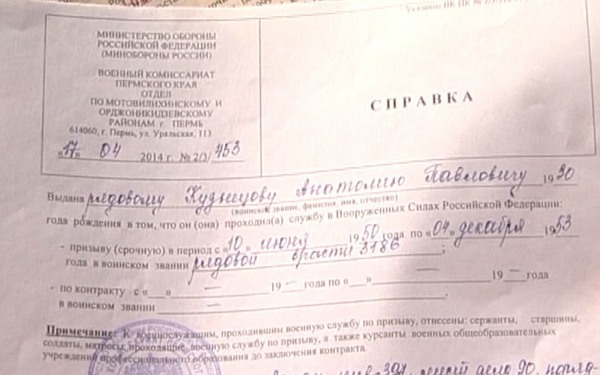 МИНИСТЕРСТВО ОБОРОНЫ
РОССИЙСКОЙ ФЕДЕРАЦИИ
(МИНОБОРОНЫ РОССИИ)
ВОЕННЫЙ КОМИССАРИАТ
ПЕРМСКОГО КРАЯ
ОТДЕЛ
ПО МОТОВИЛИХИНСКОМУ И
ОРДЖОНИКИДЗЕВСКОМУ
РАЙОНАМ г. ПЕРМЬ
614060, г. Пермь, ул. Уральская, 113
"17" 04 2014 г. № 2/3/453
СПРАВКА
Выдана рядовому Кузнецову Анатолию Павловичу 1930
(воинское звание, фамилия, имя, отчество)
года рождения в том, что он (она) проходил(а) службу в Вооруженных Силах Российской Федерации:
- призыву (срочную) в период с "10" июня 1950 года по "04" декабря 1953
года в воинском звании рядовой в/части 3186;
- по контракту с «___» — 19 — года по «___» — 19 — года
в воинском звании —
Примечание: К военнослужащим, проходившим военную службу по призыву, отнесены: сержанты, старшины,
солдаты, матросы, проходящие военную службу по призыву, а также курсанты военных общеобразовательных
учреждений профессионального образования до заключения контракта.
дело 90,